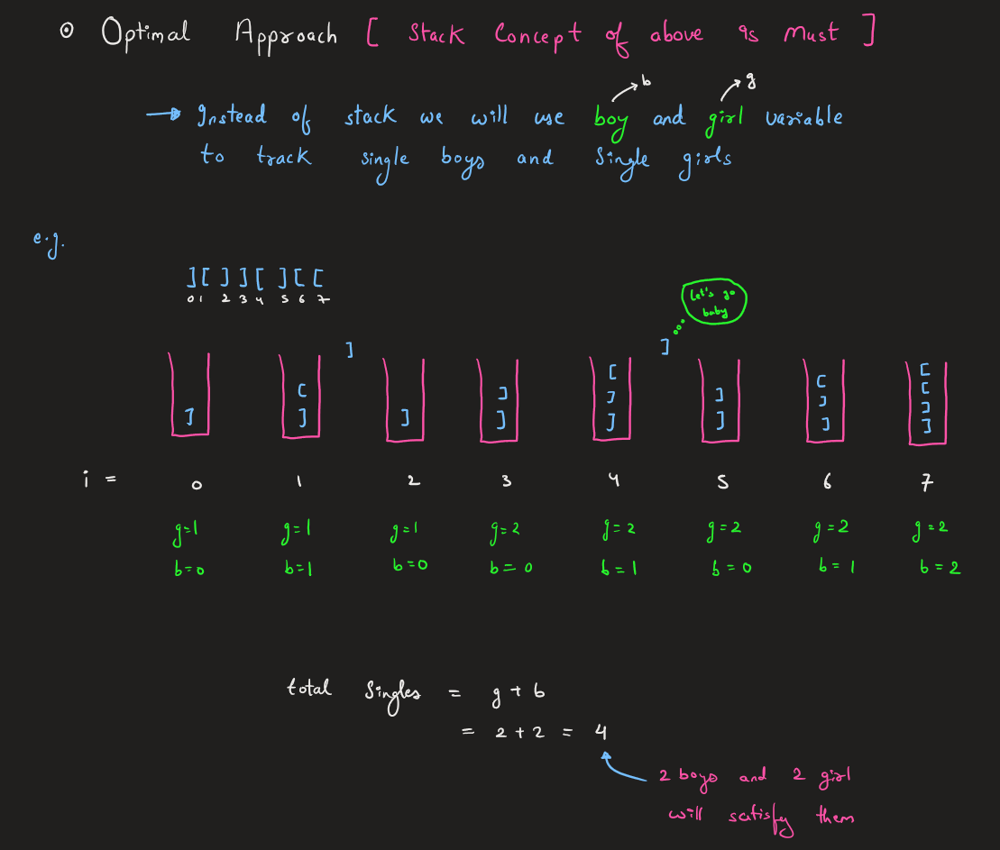 Optimal Approach [ Stack Concept of above is Must ]
b g
→ Instead of stack we will use boy and girl variable
to track single boys and Single girls
e.g.
] [ ] ] [ ] [ [
0 1 2 3 4 5 6 7
Let's go
baby
] ]
[
[ [ [
[ ] ] ] [ ] ]
] ] ] ] ] ] ] ]
i = 0 1 2 3 4 5 6 7
g=1 g=1 g=1 g=2 g=2 g=2 g=2 g=2
b=0 b=1 b=0 b=0 b=1 b=0 b=1 b=2
total Singles = g + b
= 2 + 2 = 4
2 boys and 2 girl
will satisfy them